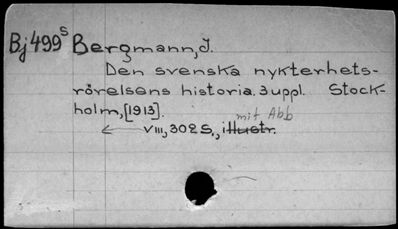 Bj 499 S Bergmann, J.
Den svenska nykterhets-
rörelsens historia. 3 uppl. Stock-
holm, [1913].
mit Abb
VIII, 302 S., illustr.